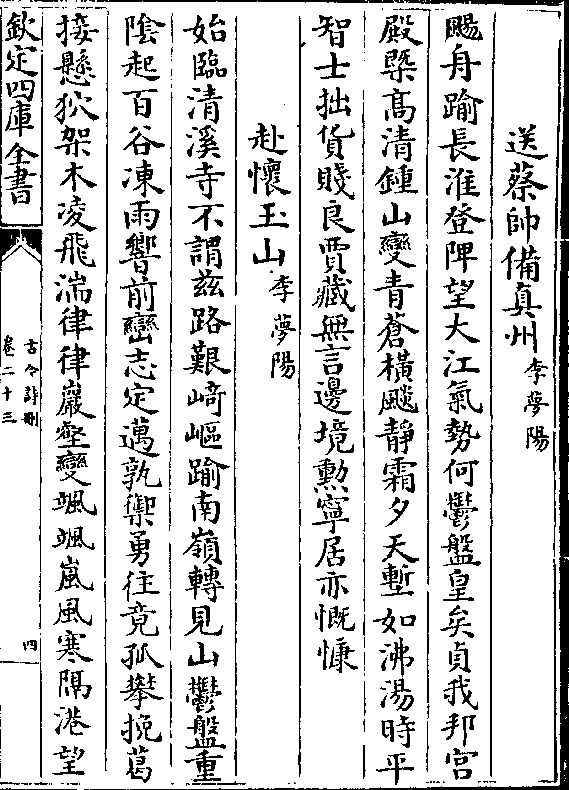 送蔡帥備真州李夢陽
颺舟踰長淮登陴望大江氣勢何鬱盤皇矣貞我邦宫
殿槩髙清鍾山變青蒼橫飈靜霜夕天塹如沸湯時平
智士拙貨賤良賈藏無言邊境勲寧居亦慨慷
赴懷玉山李夢陽
始臨清溪寺不謂兹路艱﨑嶇踰南嶺轉見山鬱盤重
陰起百谷凍雨響前巒志定邁孰禦勇往竟孤攀挽葛
接懸狖架木凌飛湍律律巖壑變颯颯嵐風寒隔港望
欽定四庫全書
古今詩刪
卷二十三
四